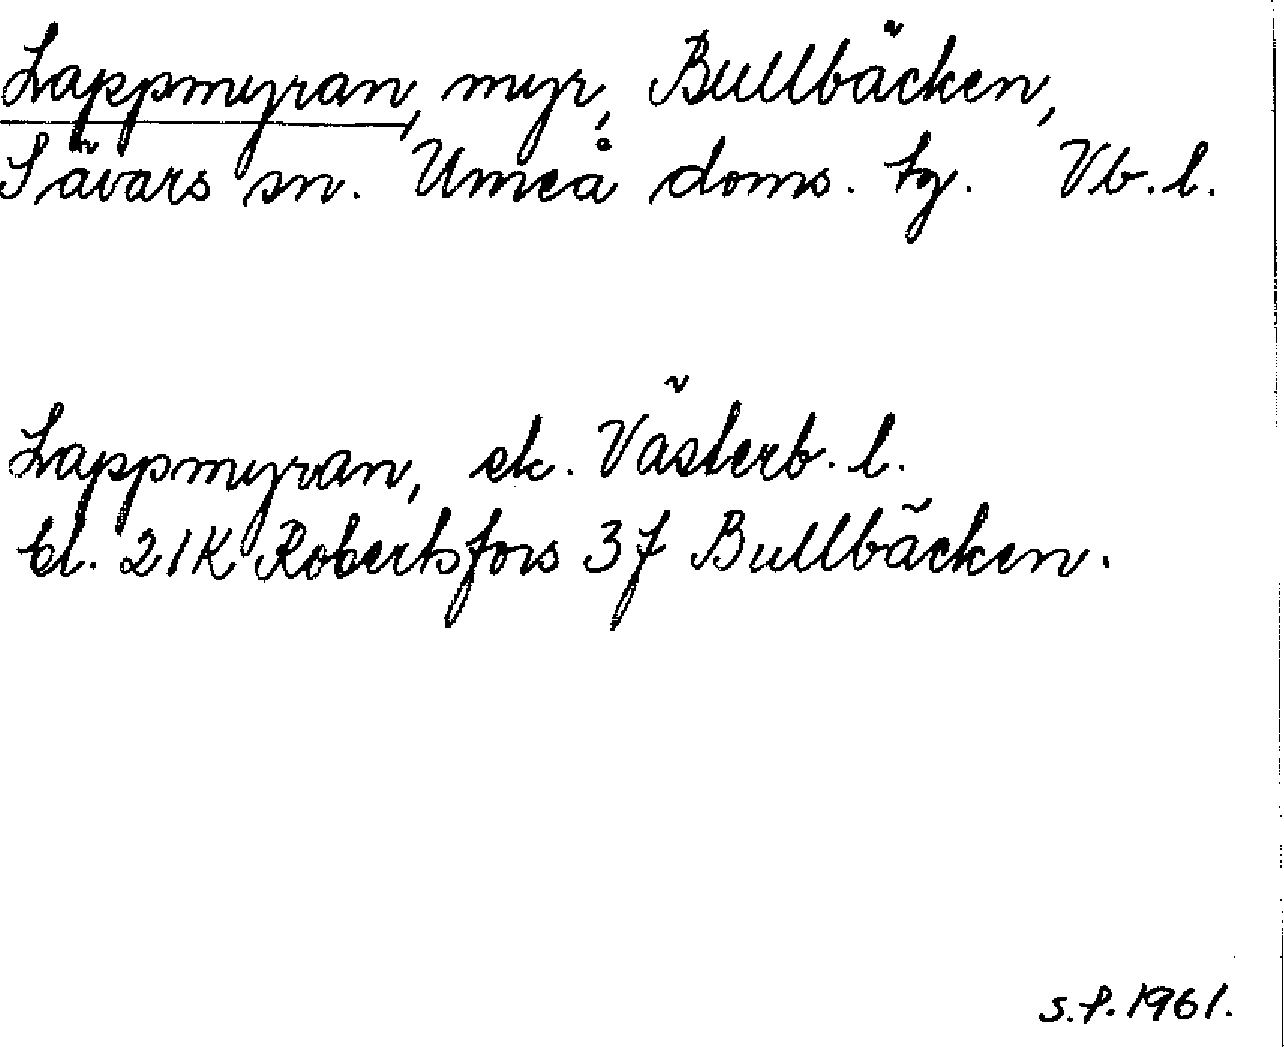 Lappmyran, myr, Bullbäcken,
Sävars sn. Umeå doms. tg. Vb.l.
Lappmyran, ek. Västerb. l.
bl. 21K Robertsfors 3f Bullbäcken.
s.f. 1961.